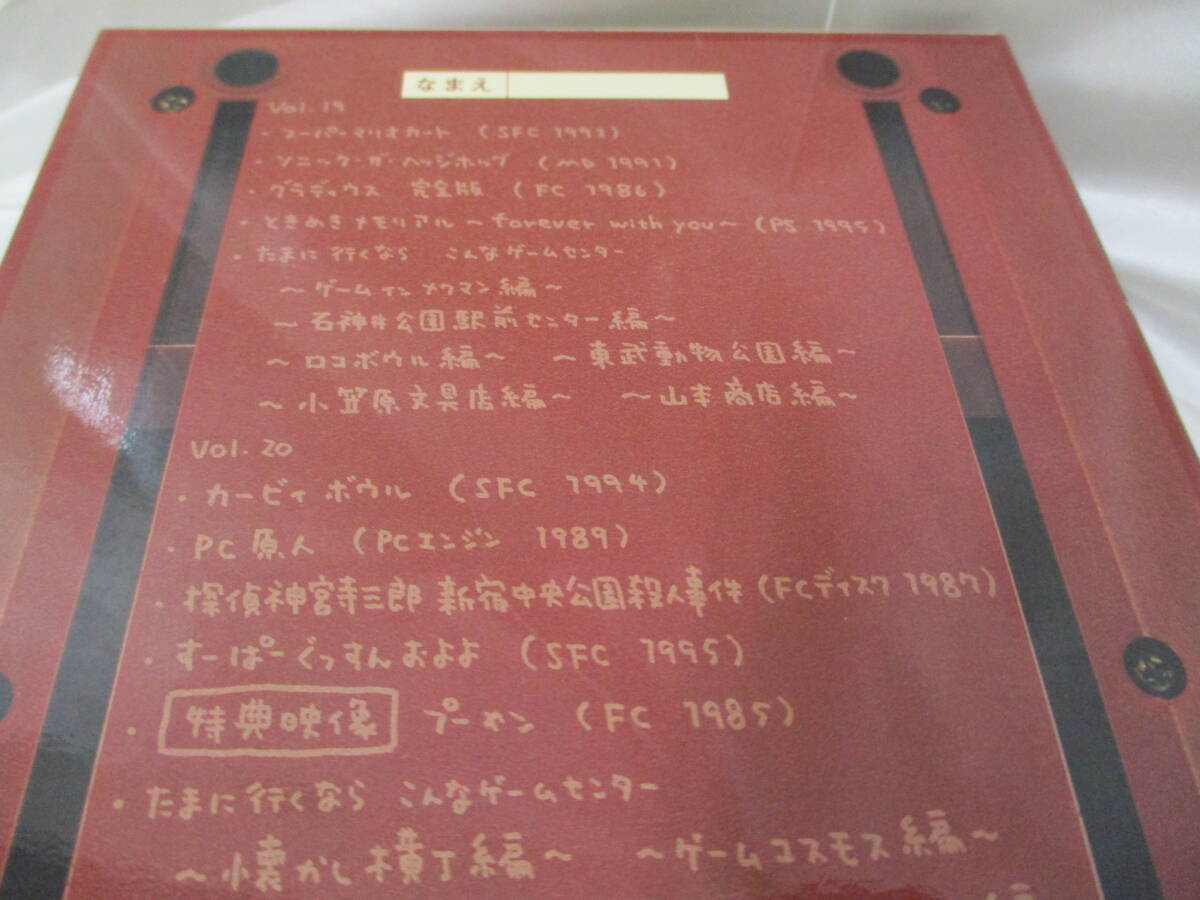 なまえ
Vol. 19
・スーパーマリオカート (SFC 1992)
・ソニック・ザ・ヘッジホッグ (MD 1991)
・グラディウス 完全版 (FC 1986)
・ときめきメモリアル〜forever with you〜 (PS 1995)
・たまに行くなら こんなゲームセンター
〜ゲームインメクマン編〜
〜石神井公園駅前センター編〜
〜ロコボウル編〜 〜東武動物公園編〜
〜小笠原文具店編〜 〜山本商店編〜
Vol. 20
・カービィボウル (SFC 1994)
・PC原人 (PCエンジン 1989)
・探偵神宮寺三郎 新宿中央公園殺人事件 (FCディスク 1987)
・すーぱーぐっすんおよよ (SFC 1995)
・特典映像 プーヤン (FC 1985)
・たまに行くなら こんなゲームセンター
〜懐かし横丁編〜 〜ゲームコスモス編〜